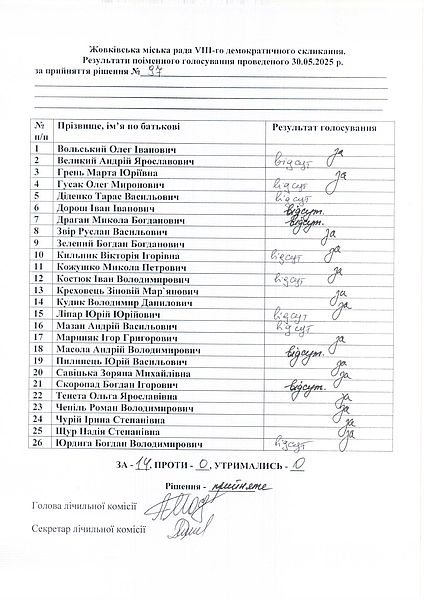 Жовківська міська рада VIII-го демократичного скликання.
Результати поіменного голосування проведеного 30.05.2025 р.
за прийняття рішення № 97
№ п/п Прізвище, ім'я по батькові Результат голосування
1 Вольський Олег Іванович за
2 Великий Андрій Ярославович відсут
3 Грень Марта Юріївна за
4 Гусак Олег Миронович відсут
5 Діденко Тарас Васильович відсут
6 Дорош Іван Іванович відсут.
7 Драган Микола Богданович відсут.
8 Звір Руслан Васильович за
9 Зелений Богдан Богданович за
10 Кильник Вікторія Ігорівна відсут
11 Кожушко Микола Петрович за
12 Костюк Іван Володимирович відсут
13 Креховець Зіновій Мар'янович за
14 Кудик Володимир Данилович за
15 Ліпар Юрій Юрійович відсут
16 Мазан Андрій Васильович відсут
17 Мариняк Ігор Григорович за
18 Масола Андрій Володимирович відсут.
19 Пилипець Юрій Васильович за
20 Савіцька Зоряна Михайлівна за
21 Скоропад Богдан Ігорович відсут.
22 Тенета Ольга Ярославівна за
23 Чепіль Роман Володимирович за
24 Чурій Ірина Степанівна за
25 Щур Надія Степанівна за
26 Юрдига Богдан Володимирович відсут
ЗА - 14, ПРОТИ - 0, УТРИМАЛИСЬ - 0
Рішення - прийняте
Голова лічильної комісії
Секретар лічильної комісії